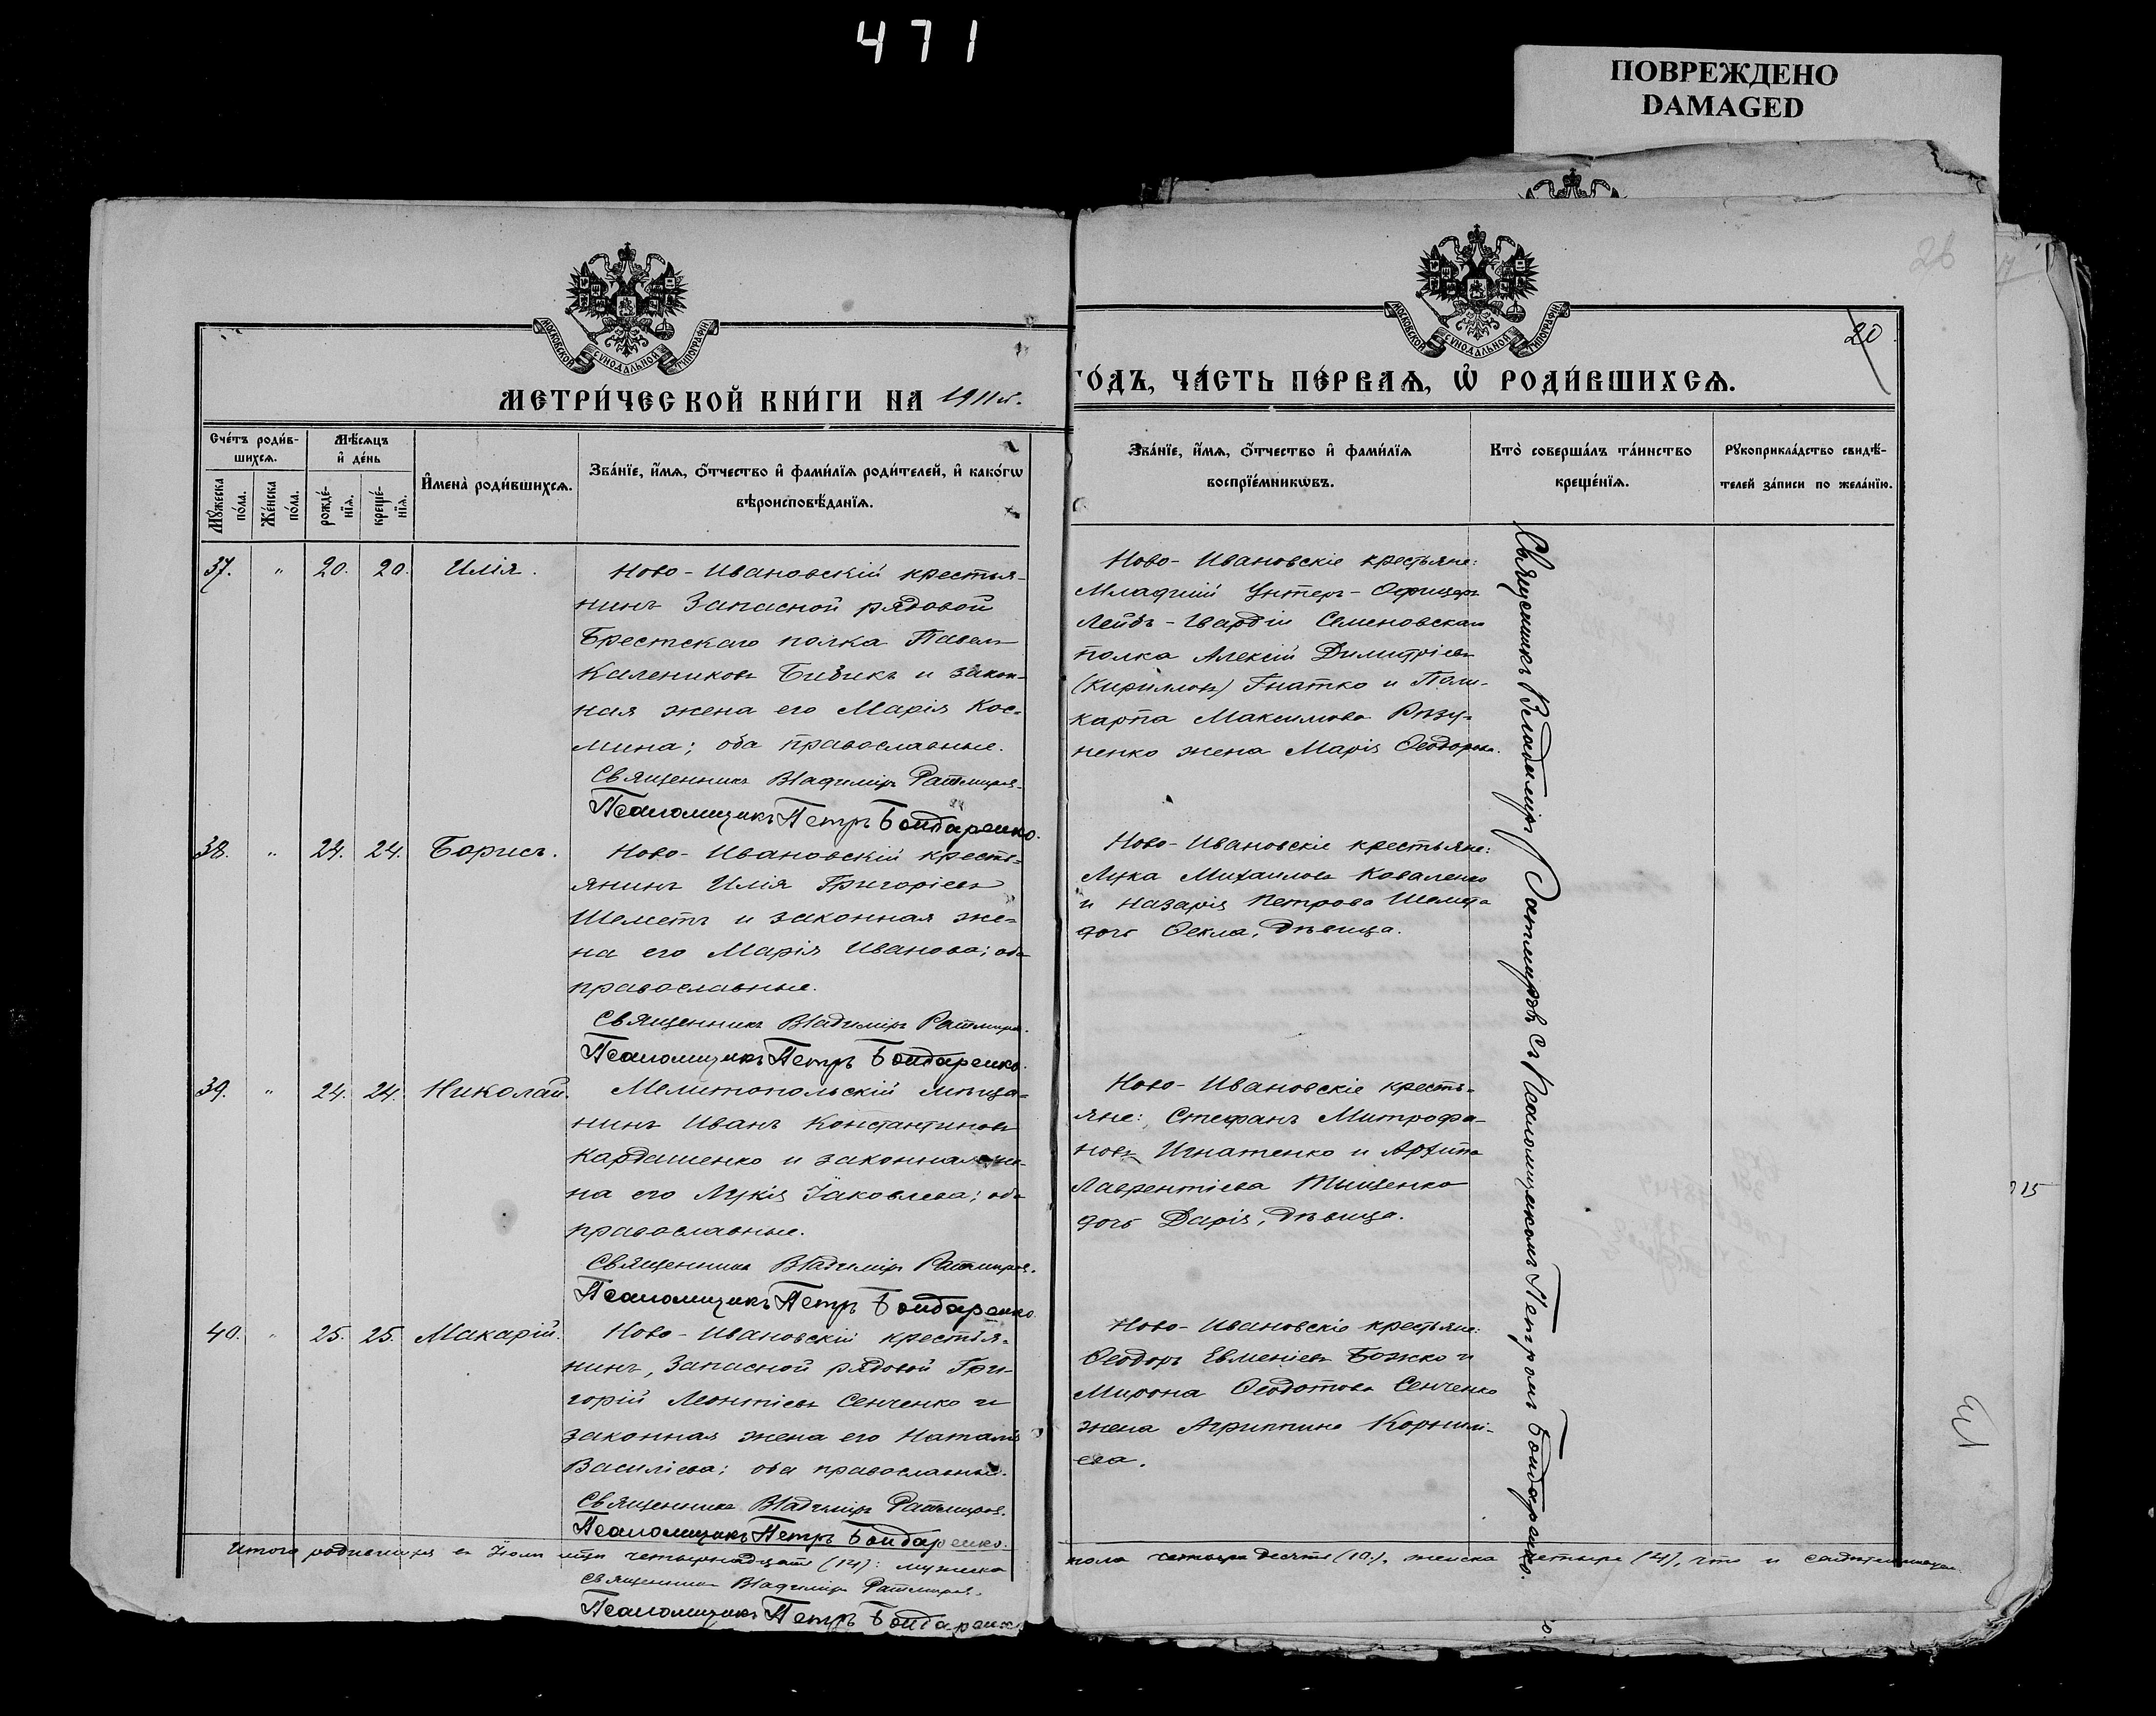 471
ПОВРЕЖДЕНО
DAMAGED
26
17
20
МОСКОВСКОЙ СѴНОДАЛЬНОЙ ТИПОГРАФІИ
МОСКОВСКОЙ СѴНОДАЛЬНОЙ ТИПОГРАФІИ
МЕТРИ́ЧЕСКОЙ КНИ́ГИ НА 1911 г.
ГО́ДЪ, ЧА́СТЬ ПЕ́РВАѦ, Ѡ҆ РОДИ́ВШИХСѦ.
Сче́тъ роди́в-
шихсѧ.
Мѣ́сѧцъ
и҆ де́нь
Мꙋ́жеска по́ла.
Же́нска по́ла.
рожде́-нїѧ.
креще́-нїѧ.
И҆мена̀ роди́вшихсѧ.
Зва́нїе, и҆́мѧ, ѻ҆́тчество и҆ фами́лїѧ роди́телей, и҆ како́гѡ
вѣроисповѣ́данїѧ.
Зва́нїе, и҆́мѧ, ѻ҆́тчество и҆ фами́лїѧ
воспрїе́мникѡвъ.
Кто̀ соверша́лъ та́инство
креще́нїѧ.
Рꙋкоприкла́дство свидѣ́-
телей за́писи по жела́нїю.
37. " 20. 20. Илія.
Ново-Ивановскій крестья-
нинъ Запасной рядовой
Брестскаго полка Павелъ
Калениковъ Бибикъ и закон-
ная жена его Марія Кос-
мина; оба православные.
Священникъ Владиміръ Ратмировъ.
Псаломщикъ Петръ Бондаренко.
Ново-Ивановскіе крестьяне:
Младшій Унтеръ-Офицеръ
Лейбъ-Гвардіи Семеновскаго
полка Алексій Димитріевъ
(Кирилловъ) Гнатко и Поли-
карпа Максимова
ненко жена Марія Ѳеодорова.
38. " 24. 24. Борисъ.
Ново-Ивановскій кресть-
янинъ Илія Григоріевъ
Шеметъ и законная же-
на его Марія Иванова; оба
православные.
Священникъ Владиміръ Ратмировъ.
Псаломщикъ Петръ Бондаренко.
Ново-Ивановскіе крестьяне:
Лука Михаиловъ Коваленко
и Назарія Петрова Шемета
дочь Ѳекла, дѣвица.
39. " 24. 24. Николай.
Мелитопольскій мѣща-
нинъ Иванъ Константиновъ
Кардашенко и законная же-
на его Лукія Іаковлева; оба
православные.
Священникъ Владиміръ Ратмировъ.
Псаломщикъ Петръ Бондаренко.
Ново-Ивановскіе кресть-
яне: Стефанъ Митрофа-
новъ Игнатенко и Архипа
Лаврентіева Тищенко
дочь Дарія, дѣвица.
40. " 25. 25. Макарій.
Ново-Ивановскій крестья-
нинъ, Запасной рядовой Гри-
горій Леонтіевъ Сенченко и
законная жена его Наталія
Василіева; оба православные.
Священникъ Владиміръ Ратмировъ.
Псаломщикъ Петръ Бондаренко.
Ново-Ивановскіе крестьяне:
Ѳеодоръ Евменіевъ Божко и
Мирона Ѳеодотова Сенченко
жена Агриппина Корнилі-
ева.
Священникъ Владиміръ Ратмировъ съ Псаломщикомъ Петромъ Бондаренко.
Итого родившихся въ Іюлѣ м-цѣ четырнадцать (14): мужеска
пола десять (10), женска четыре (4), что и
Священникъ Владиміръ Ратмировъ.
Псаломщикъ Петръ Бондаренко
15